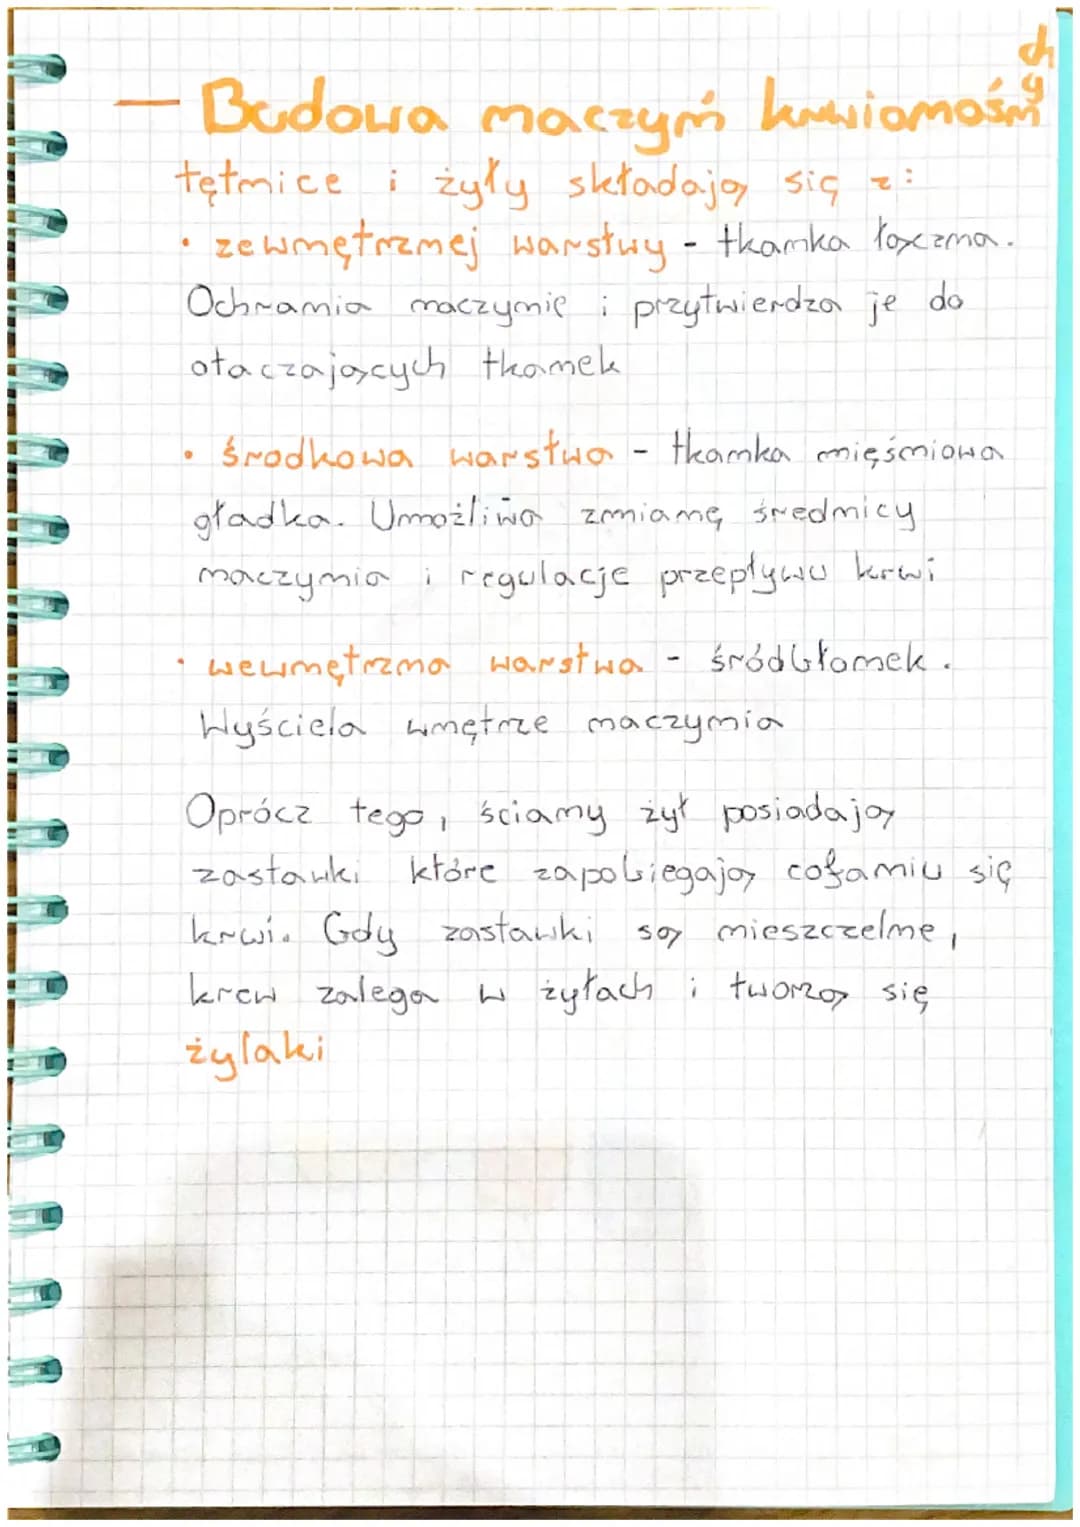 — Budowa naczyń krwionośnych
tętnice i żyły składają się z:
• zewnętrznej warstwy - tkanka łączna.
Ochrania naczynie i przytwierdza je do
otaczających tkanek
• środkowa warstwa - tkanka mięśniowa
gładka. Umożliwa zmianę średnicy
naczynia i regulacje przepływu krwi
• wewnętrzna warstwa - śródbłonek.
Wyściela wnętrze naczynia
Oprócz tego, ściany żył posiadają
zastawki które zapobiegają cofaniu się
krwi. Gdy zastawki są nieszczelne,
krew zalega w żyłach i tworzą się
żylaki